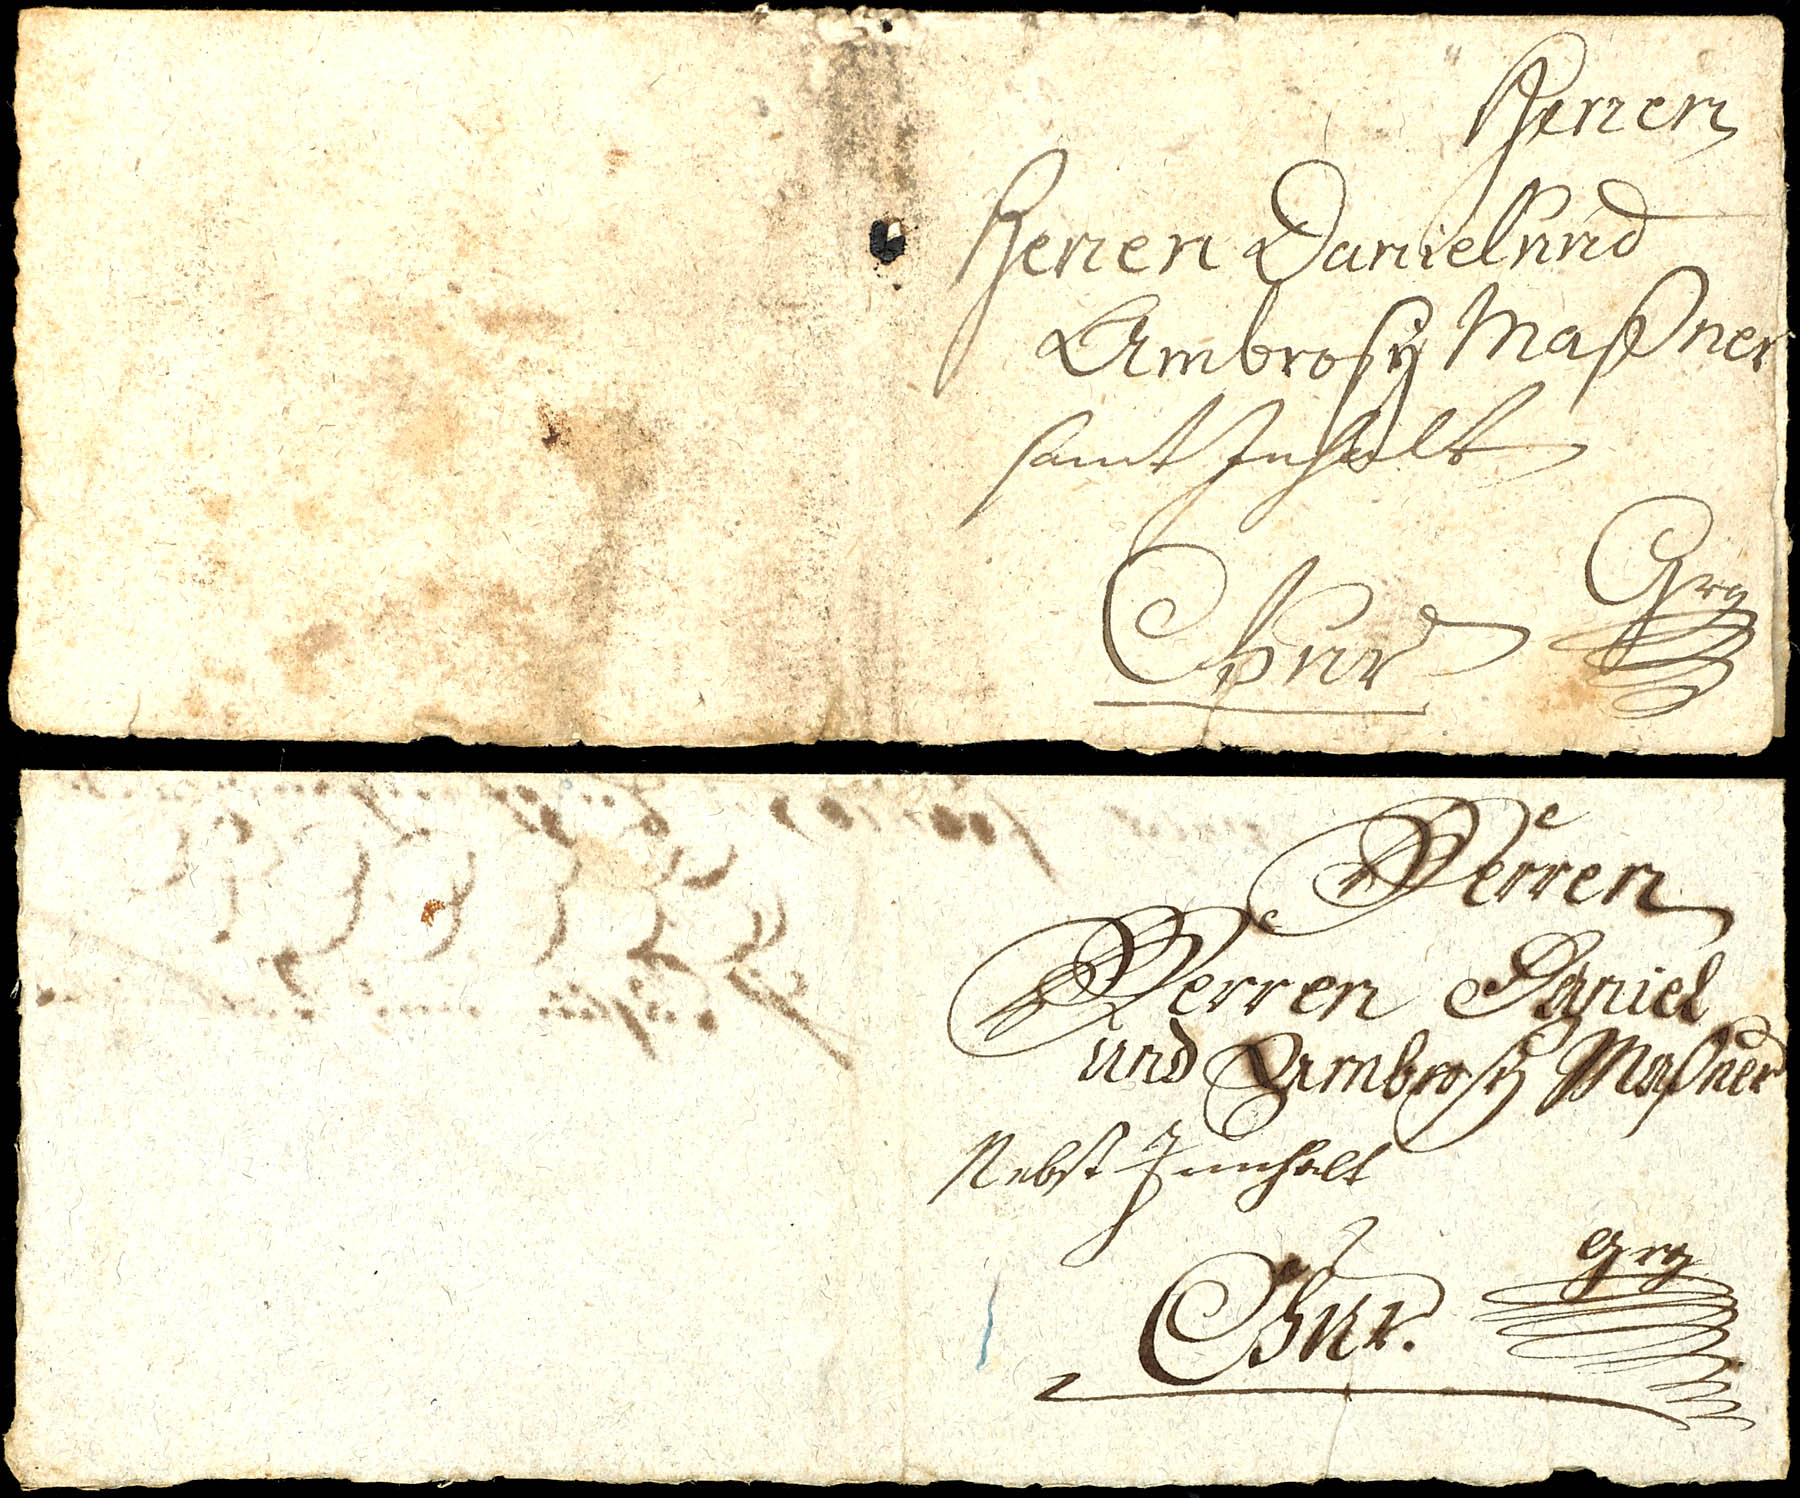 Herren
Herren Daniel und
Ambrosÿ Maßner
samt Inhalt
Chur Grg
Herren
Herren Daniel
und Ambrosÿ Maßner
Nebst Innhalt
Chur. grg